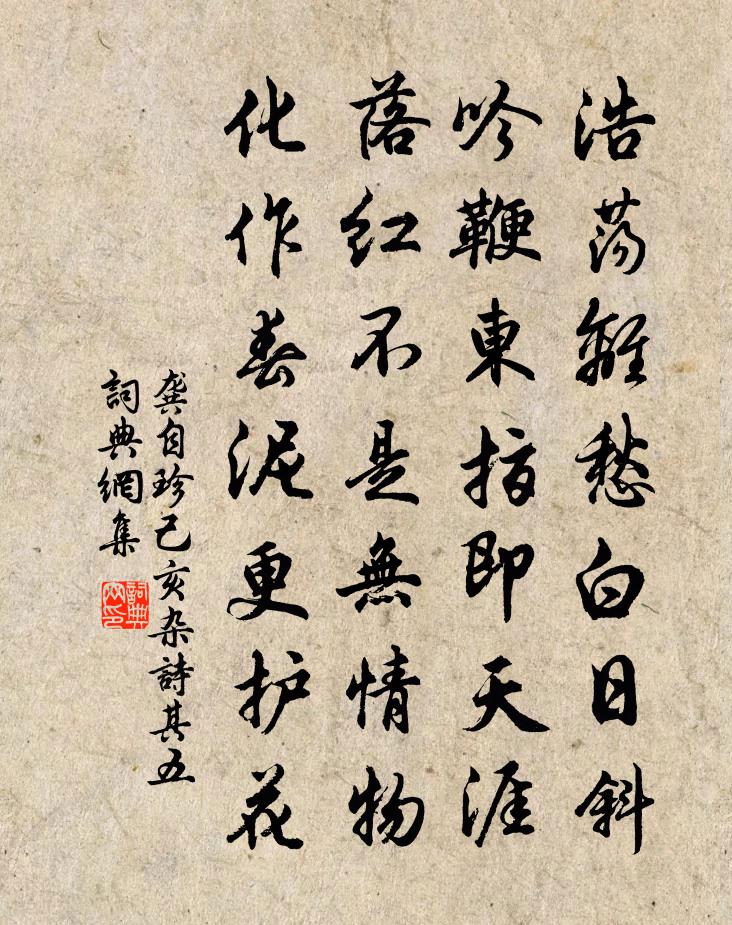 浩荡離愁白日斜
吟鞭東指即天涯
落红不是無情物
化作春泥更护花
龔自珍己亥杂詩其五
詞典網集
詞典
网印